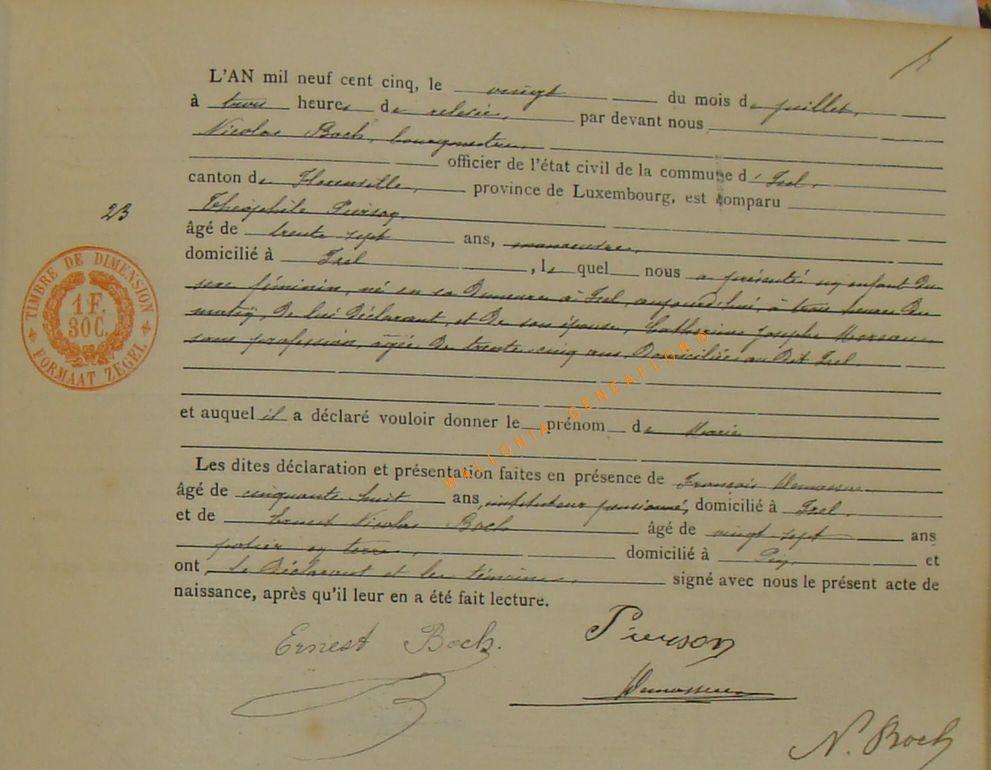 L'AN mil neuf cent cinq, le vingt du mois de juillet,
à trois heures de relevée, par devant nous
Nicolas Boch, bourgmestre,
officier de l'état civil de la commune d'Izel,
canton de Florenville, province de Luxembourg, est comparu
23
Théophile Pierson,
âgé de trente sept ans, manoeuvre,
domicilié à Izel, le quel nous a présenté un enfant du
sexe féminin, né en sa demeure à Izel, aujourd'hui, à trois heures du
matin, de lui déclarant, et de son épouse, Catherine Joseph
sans profession, agée de trente-cinq ans, domiciliée au dit Izel.
et auquel il a déclaré vouloir donner le prénom de Marie
Les dites déclaration et présentation faites en présence de François
âgé de cinquante huit ans, instituteur pensionné, domicilié à Izel
et de Ernest Nicolas Boch âgé de vingt sept ans
potier en terre, domicilié à Pin, et
ont le déclarant et les témoins, signé avec nous le présent acte de
naissance, après qu'il leur en a été fait lecture.
Ernest Boch. Pierson
N. Boch
TIMBRE DE DIMENSION
1 F.
30C.
FORMAAT ZEGEL
WALLONIA GENEAFLOR ©